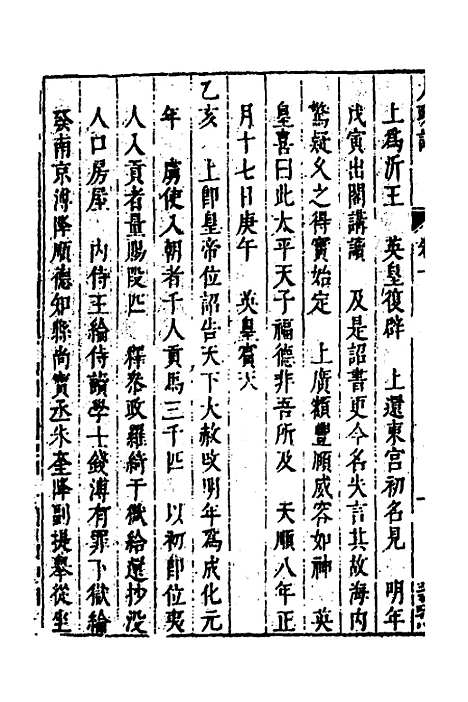 上爲沂王　英皇復辟　上還東宮初名見　明年
戊寅出閣講讀　及是詔書更今名失言其故海內
驚疑久之得實始定　上廣額豐頤威容如神　英
皇喜曰此太平天子福德非吾所及　天順八年正
月十七日庚午　英皇賓天
乙亥　上卽皇帝位詔告天下大赦改明年爲成化元
年　虜使入朝者千人貢馬三千匹　以初卽位夷
人入貢者量賜段匹　釋參政羅綺于獄給還抄沒
人口房屋　內侍王綸侍讀學士錢溥有罪下獄綸
發南京溥降順德知縣尚寶丞朱奎降副提舉從坐